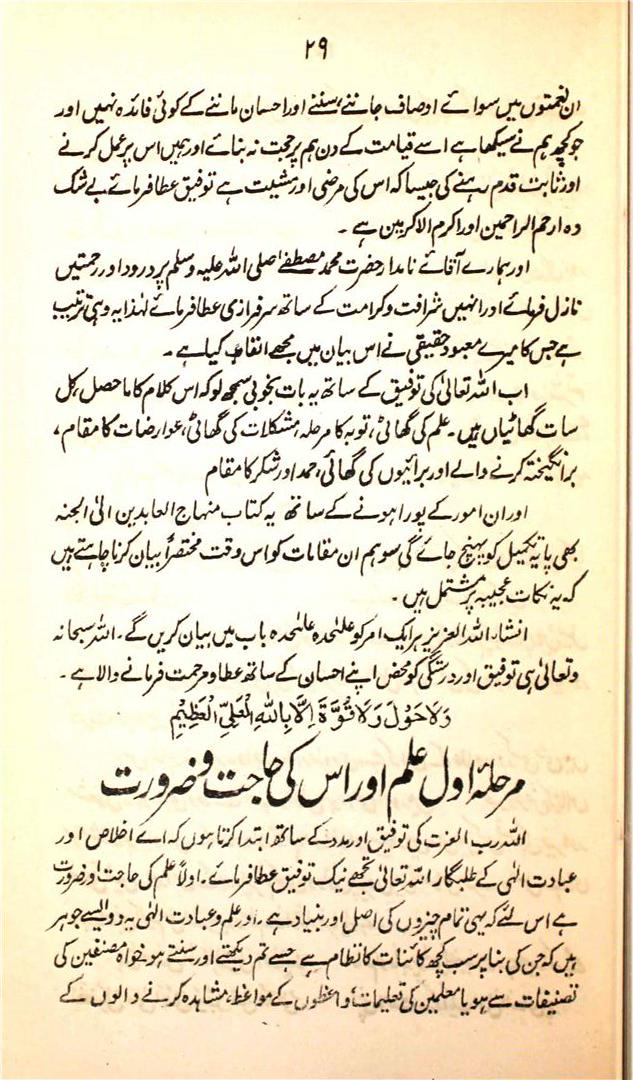 ۲۹
ان نعمتوں میں سوائے اوصاف جاننے، سننے اور احسان ماننے کے کوئی فائدہ نہیں اور
جو کچھ ہم نے سیکھا ہے اسے قیامت کے دن ہم پر حجت نہ بنائے اور ہمیں اس پر عمل کرنے
اور ثابت قدم رہنے کی جیسا کہ اس کی مرضی اور مشیت ہے توفیق عطا فرمائے بے شک
وہ ارحم الراحمین اور اکرم الاکرمین ہے ۔
اور ہمارے آقائے نامدار حضرت محمد مصطفےٰ صلی اللہ علیہ وسلم پر درود اور رحمتیں
نازل فرمائے اور انہیں شرافت و کرامت کے ساتھ سرفرازی عطا فرمائے لہٰذا یہ وہی ترتیب
ہے جس کا میرے معبود حقیقی نے اس بیان میں مجھے القاء کیا ہے ۔
اب اللہ تعالیٰ کی توفیق کے ساتھ یہ بات بخوبی سمجھ لو کہ اس کلام کا ماحصل، کل
سات گھاٹیاں ہیں ۔ علم کی گھاٹی، توبہ کا مرحلہ، مشکلات کی گھاٹی، عوارضات کا مقام،
برانگیختہ کرنے والے اور برائیوں کی گھاٹی، حمد اور شکر کا مقام
اور ان امور کے پورا ہونے کے ساتھ یہ کتاب منہاج العابدین الیٰ الجنہ
بھی پایۂ تکمیل کو پہنچ جائے گی سو ہم ان مقامات کو اس وقت مختصراً بیان کرنا چاہتے ہیں
کہ یہ نکات عجیبہ پر مشتمل ہیں ۔
انشاء اللہ العزیز ہر ایک امر کو علیٰحدہ علیٰحدہ باب میں بیان کریں گے ۔ اللہ سبحانہ
وتعالیٰ ہی توفیق اور درستگی کو محض اپنے احسان کے ساتھ عطا و مرحمت فرمانے والا ہے ۔
وَلَا حَوْلَ وَلَا قُوَّةَ اِلَّا بِاللّٰهِ الْعَلِيِّ الْعَظِيْمِ
مرحلۂ اول علم اور اس کی حاجت و ضرورت
اللہ رب العزت کی توفیق اور مدد کے ساتھ ابتدا کرتا ہوں کہ اے اخلاص اور
عبادت الٰہی کے طلبگار اللہ تعالیٰ تجھے نیک توفیق عطا فرمائے ۔ اولاً علم کی حاجت اور ضرورت
ہے اس لئے کہ یہی تمام چیزوں کی اصل اور بنیاد ہے ۔ اور علم و عبادت الٰہی یہ دو ایسے جوہر
ہیں کہ جن کی بنا پر سب کچھ کائنات کا نظام ہے جسے تم دیکھتے اور سنتے ہو خواہ مصنفین کی
تصنیفات سے ہو یا معلمین کی تعلیمات، واعظوں کے مواعظ، مشاہدہ کرنے والوں کے